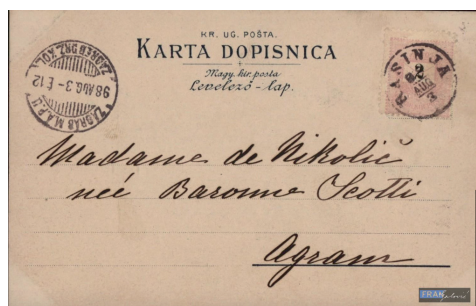 KR. UG. POŠTA.
KARTA DOPISNICA
Magy. kir. posta
Levelező-lap.
ZAGREB DRŽ. KOL.
98 AUG. 3 - E. 12
ZÁGRÁB M.Á.P.U.
RASINJA
AUG
3
Madame de Nikolić
neé Baronne Scotti
Agram
FRAN